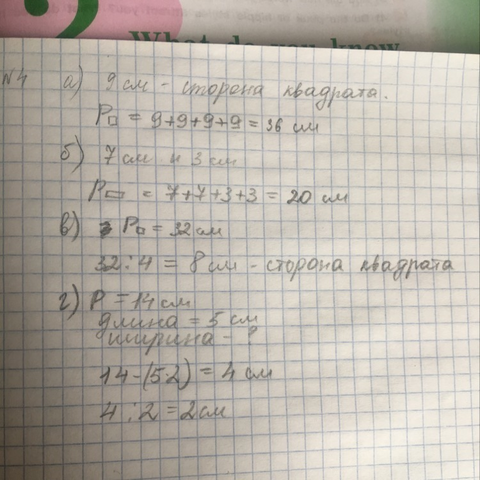 What do you know
N4 а) 9 см - сторона квадрата.
P□ = 9+9+9+9 = 36 см
б) 7 см и 3 см
P▭ = 7+7+3+3 = 20 см
в) P□ = 32 см
32:4 = 8 см - сторона квадрата
г) P = 14 см
длина = 5 см
ширина - ?
14-(5·2) = 4 см
4 : 2 = 2 см